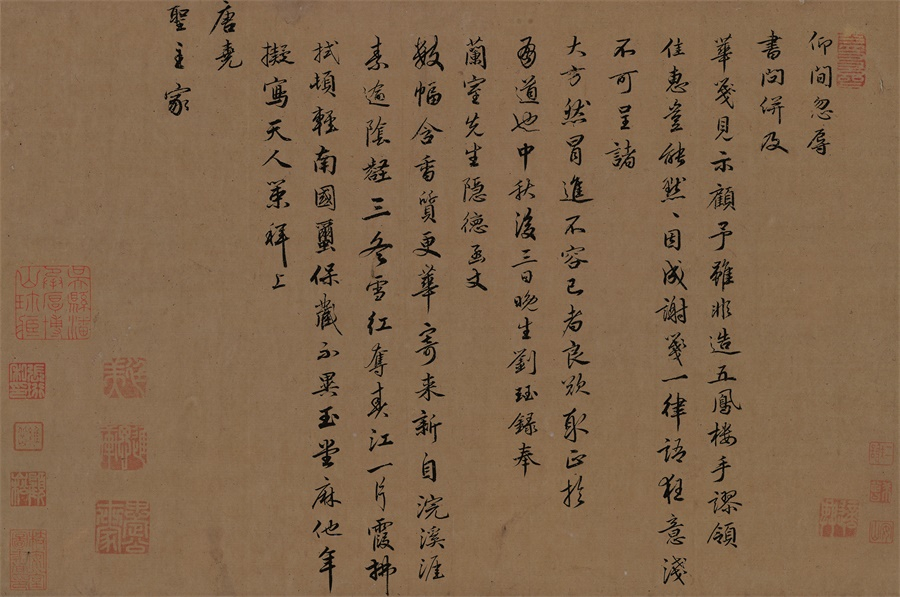 仰間忽辱
書問併及
華箋見示顧予雖非造五鳳楼手謬領
佳惠豈能默〻因成謝箋一律語狂意淺
不可呈諸
大方然冒進不容已者良欲取正於
有道也中秋後三日晚生劉珏録奉
蘭室先生隱德函丈
數幅含香質更華寄来新自浣溪涯
素逾陰壑三冬雪紅奪春江一片霞拂
拭頓輕南國璽保藏不異玉堂麻他年
擬寫天人策拜上
唐堯
聖主家